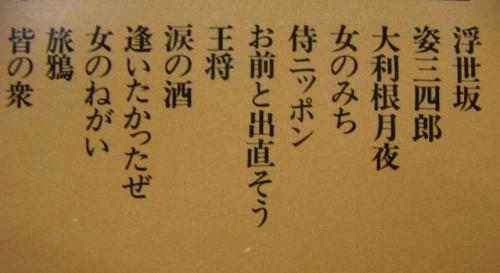 浮世坂
姿三四郎
大利根月夜
女のみち
侍ニッポン
お前と出直そう
王将
涙の酒
逢いたかったぜ
女のねがい
旅鴉
皆の衆